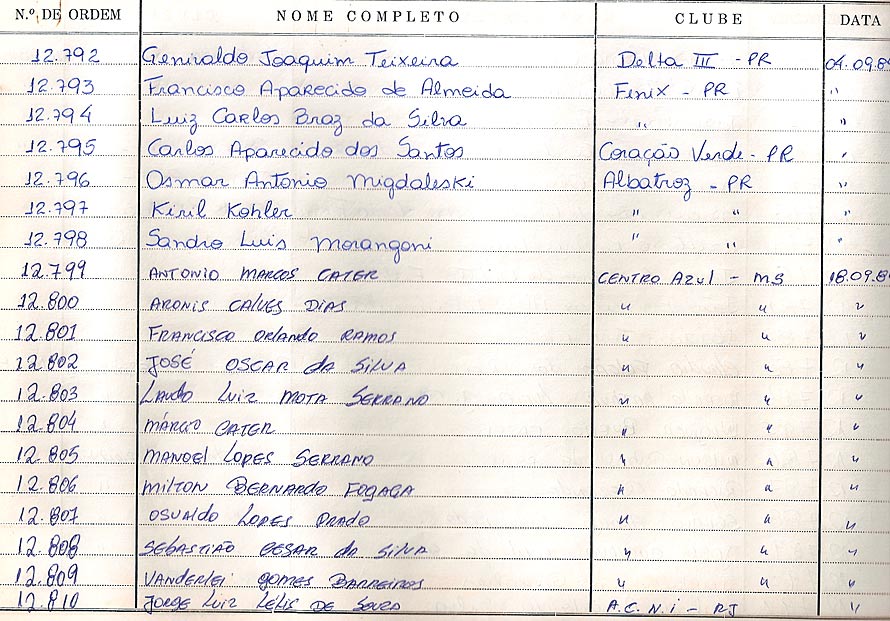 N.º DE ORDEM NOME COMPLETO CLUBE DATA
12.792 Genivaldo Joaquim Teixeira Delta III - PR 04.09.8
12.793 Francisco Aparecido de Almeida Fenix - PR "
12.794 Luiz Carlos Braz da Silva " "
12.795 Carlos Aparecido dos Santos Coração Verde - PR "
12.796 Osmar Antonio Migdaleski Albatroz - PR "
12.797 Kiril Kohler " " "
12.798 Sandro Luis Morangoni " " "
12.799 ANTONIO MARCOS CATER CENTRO AZUL - MS 18.09.8
12.800 ARONIS CALVES DIAS " " "
12.801 FRANCISCO ORLANDO RAMOS " " "
12.802 JOSÉ OSCAR da SILVA " " "
12.803 LAUDO LUIZ MOTA SERRANO " " "
12.804 MÁRCIO CATER " " "
12.805 MANOEL LOPES SERRANO " " "
12.806 MILTON BERNARDO FOGAÇA " " "
12.807 OSVALDO LOPES PRADO " " "
12.808 SEBASTIÃO CESAR da SILVA " " "
12.809 VANDERLEI GOMES BARREIROS " " "
12.810 JORGE LUIZ LÉLIS DE SOUZA A.C.N.i - RJ "